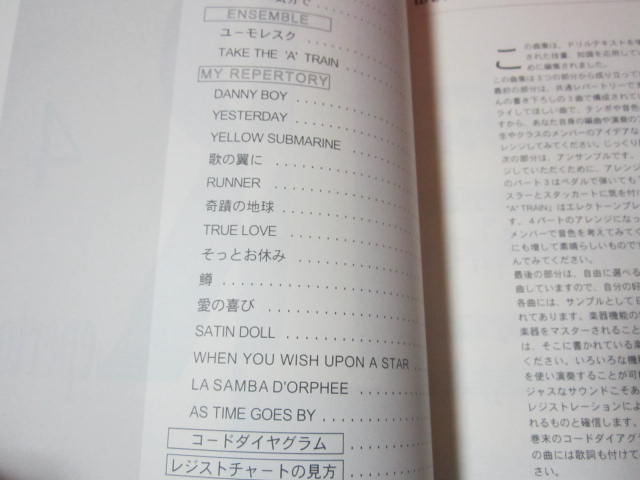 気分で
ENSEMBLE
ユーモレスク
TAKE THE 'A' TRAIN
MY REPERTORY
DANNY BOY
YESTERDAY
YELLOW SUBMARINE
歌の翼に
RUNNER
奇蹟の地球
TRUE LOVE
そっとお休み
鱒
愛の喜び
SATIN DOLL
WHEN YOU WISH UPON A STAR
LA SAMBA D'ORPHEE
AS TIME GOES BY
コードダイヤグラム
レジストチャートの見方
この曲集は、ドリルテキストを学
された技量、知識を応用してい
めに編集されました。
この曲集は3つの部分から成り立って
最初の部分は、共通レパートリーです
んの書き下ろしの3曲で構成されてい
ライしてほしい曲で、テンポや音色
すから、あなた自身の編曲や演奏のア
生やクラスのメンバーのアイデアな
レンジしてみてください。じっくり
次の部分は、アンサンブルです。
ジしていただくために、アレン
のパート3はペダルで弾いても
スラーとスタッカートに気を付
"A"TRAIN」はエレクトーンブレ
す。4パートのアレンジになっ
メンバーで音色を考えてみてく
にも増して素晴らしいものです
んでみてください。
最後の部分は、自由に選べる
曲していますので、自分の好
各曲には、サンプルとしてE
れてあります。楽器機能の
楽器をマスターされること
は、そこに書かれている楽
ください。いろいろな機
を使い演奏することが可
ジャズなサウンドこそあ
レジストレーションによ
れるものと確信します。
巻末のコードダイアグ
の曲には歌詞も付けて
さい。